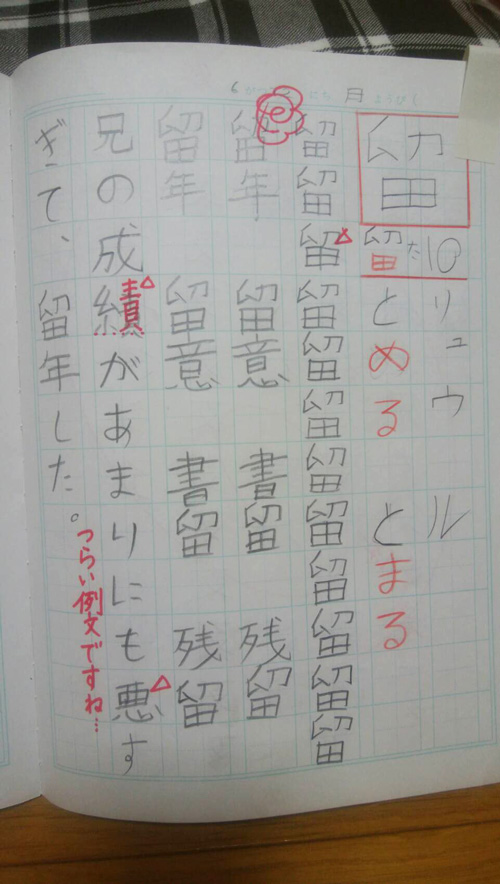 月 ようび
留
10 リュウ ル
留 た とめる とまる
留留留留留留留留留留留留
留年 留意 書留 残留
留年 留意 書留 残留
兄の成績があまりにも悪す
ぎて、留年した。
つらい例文ですね…